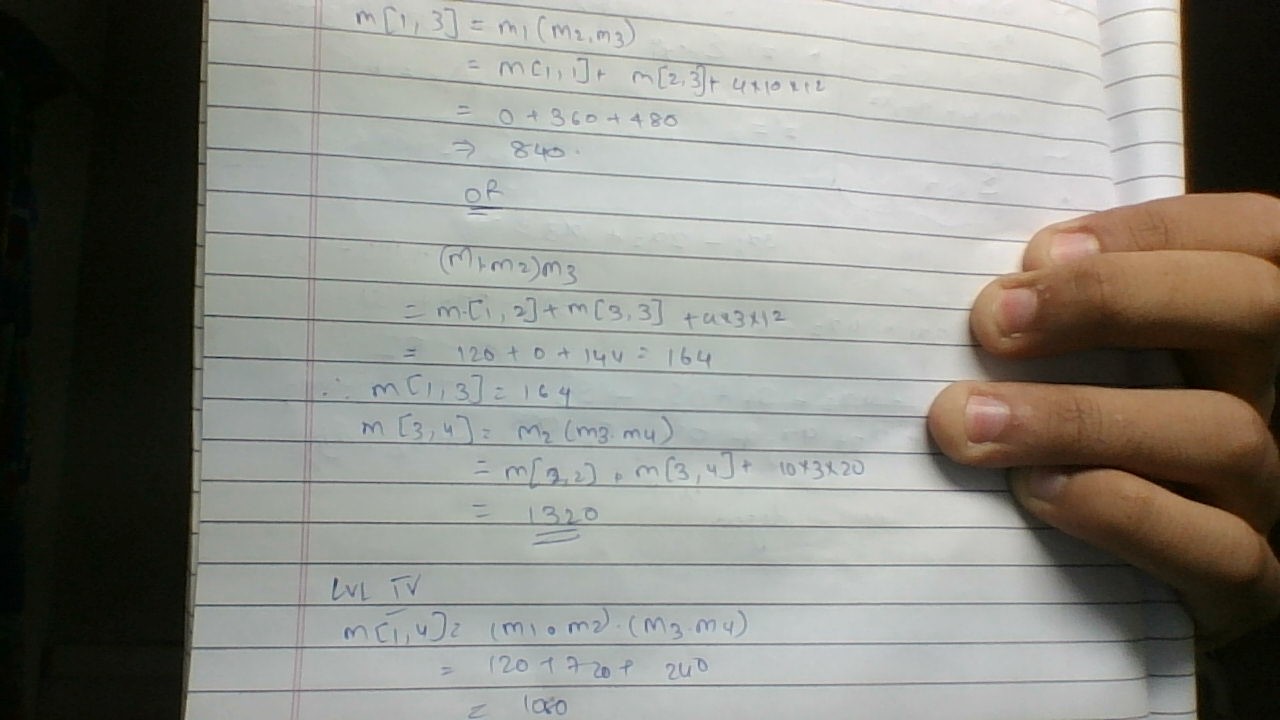 m[1,3] = m1(m2.m3)
= m[1,1]+ m[2,3]+ 4×10×12
= 0 + 360 + 480
⇒ 840.
OR
(m1.m2)m3
= m.[1,2]+m[3,3] +4×3×12
= 120 + 0 + 144 = 164
∴ m[1,3] = 164
m[3,4] = m2(m3.m4)
= m[2,2] . m[3,4]+ 10×3×20
= 1320
LVL IV
m[1,4] = (m1.m2).(m3.m4)
= 120 + 720 + 240
= 1080